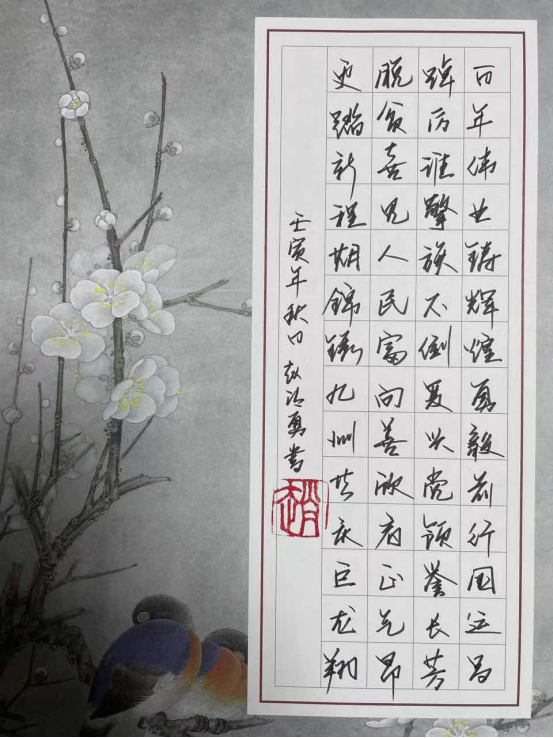 百年伟业铸辉煌勇毅前行国运昌
踔厉谁擎旗不倒复兴党领誉长芳
脱贫喜见人民富向善欣看正气昂
更踏新程期锦绣九州共庆巨龙翔
壬寅年秋日赵勇书
趙